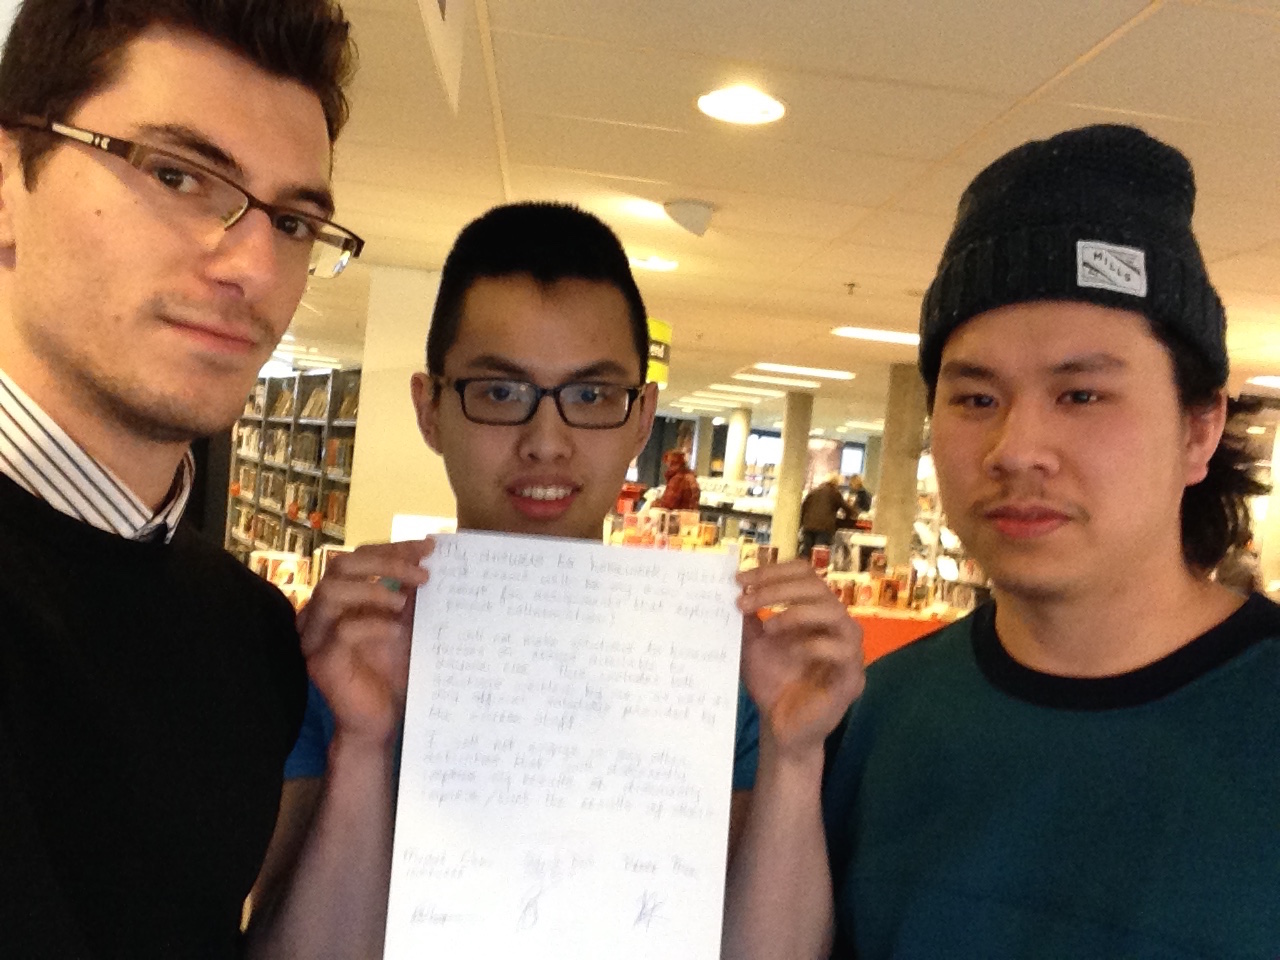 MILLS
end
My answers to homework, quizzes
and exams will be my own work
(except for assignments that explicitly
permit collaboration)
I will not make solutions to homework
quizzes or exams available to
anyone else. This includes both
solutions written by me, as well as
any official solutions provided by
the course staff.
I will not engage in any other
activities that will dishonestly
improve my results or dishonestly
improve/hurt the results of others